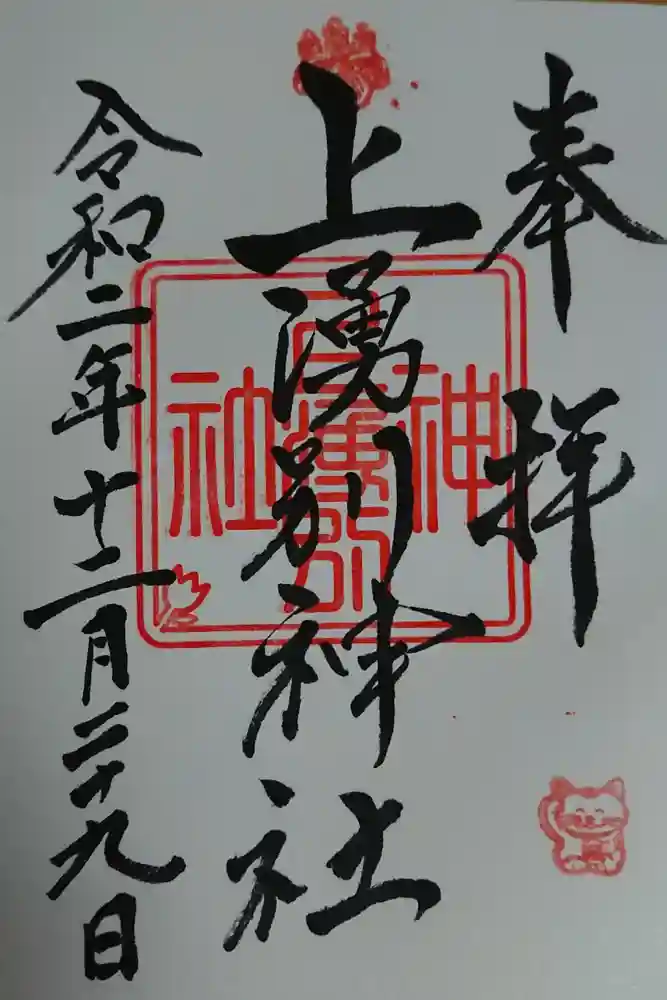 奉拝
上湧別神社
令和二年十二月二十九日
神
上湧別
社